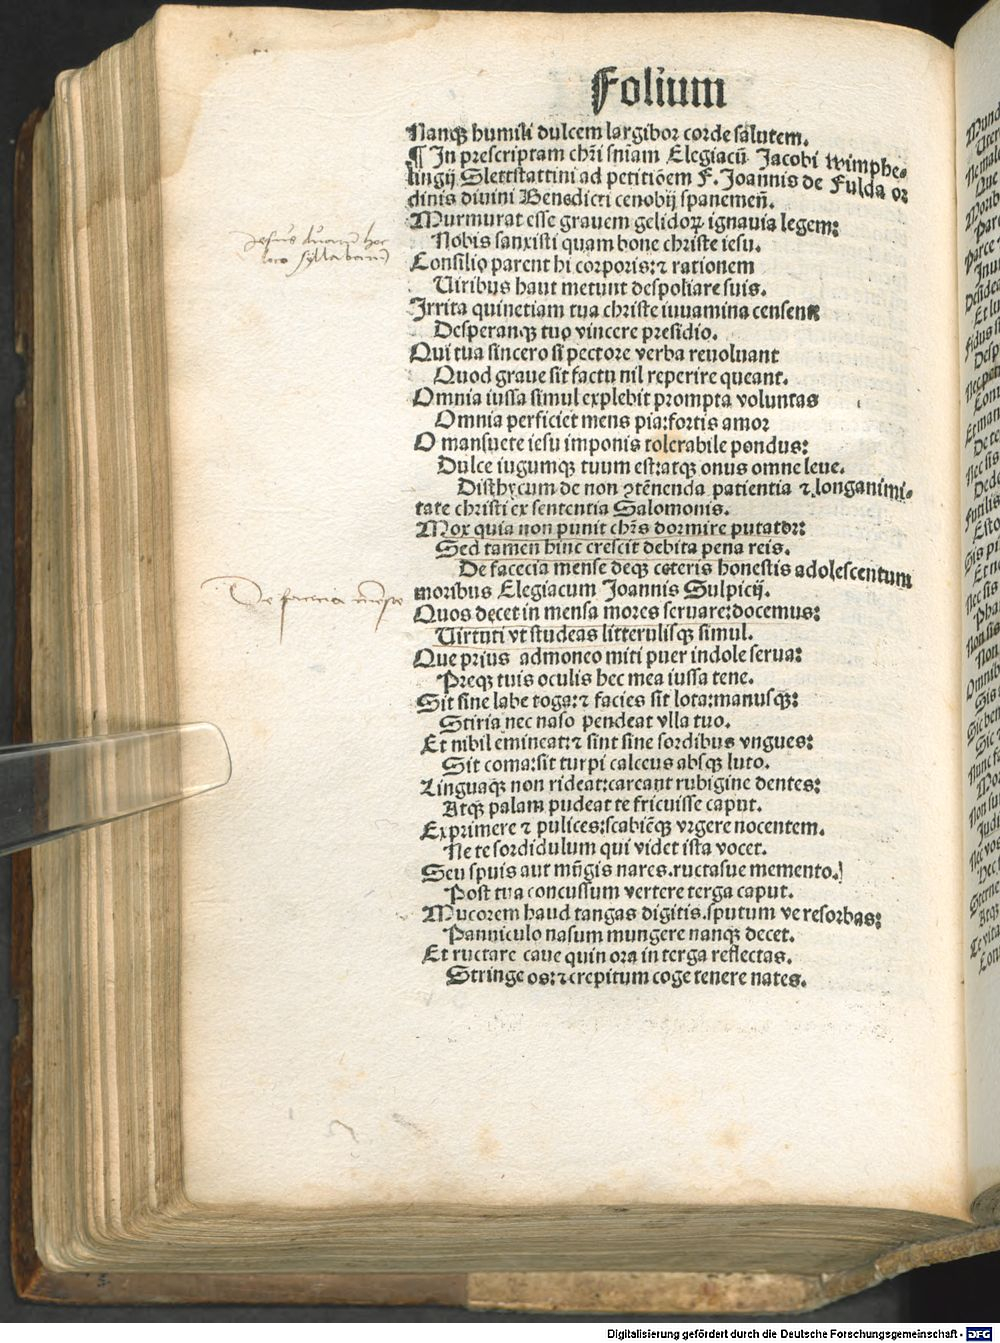 Folium
Nanqꝫ humili dulcem largibor corde salutem.
¶ In prescriptam chr̄i sn̄iam Elegiacū Jacobi wimphe-
lingij Slettstattini ad petitiōem F. Joannis de Fulda or
dinis diuini Benedicti cenobij spanemen̄.
Murmurat esse grauem gelidoꝝ ignauia legem:
Nobis sanxisti quam bone christe iesu.
Consilio parent hi corporis: ⁊ rationem
Uiribus haut metunt despoliare suis.
Irrita quinetiam tua christe iuuamina censent
Desperantqꝫ tuo vincere presidio.
Qui tua sincero si pectore verba reuoluant
Quod graue sit factu nil reperire queant.
Omnia iussa simul explebit prompta voluntas
Omnia perficiet mens pia: fortis amor
O mansuete iesu imponis tolerabile pondus:
Dulce iugumqꝫ tuum est: atqꝫ onus omne leue.
Disthycum de non ꝯtēnenda patientia ⁊ longanimi-
tate christi ex sententia Salomonis.
Mox quia non punit chr̄s dormire putatur:
Sed tamen hinc crescit debita pena reis.
De facecia mense deqꝫ ceteris honestis adolescentum
moribus Elegiacum Joannis Sulpicij.
Quos decet in mensa mores seruare: docemus:
Uirtuti vt studeas litterulisqꝫ simul.
Que prius admoneo miti puer indole serua:
Preqꝫ tuis oculis hec mea iussa tene.
Sit sine labe toga: ⁊ facies sit lota: manusqꝫ:
Stiria nec naso pendeat vlla tuo.
Et nibil emineat: ⁊ sint sine sordibus vngues:
Sit coma: sit turpi calceus absqꝫ luto.
Linguaqꝫ non rideat: careant rubigine dentes:
Atqꝫ palam pudeat te fricuisse caput.
Exprimere ⁊ pulices: scabiēqꝫ vrgere nocentem.
Ne te sordidulum qui videt ista vocet.
Seu spuis aut mūgis nares. ructasue memento.
Post tua concussum vertere terga caput.
Mucorem haud tangas digitis. sputum ve resorbas:
Panniculo nasum mungere nanqꝫ decet.
Et ructare caue quin ora in terga reflectas.
Stringe os: ⁊ crepitum coge tenere nates.
Jesus duarum hoc
loco syllabarum
De facecia mense
Digitalisierung gefördert durch die Deutsche Forschungsgemeinschaft - DFG